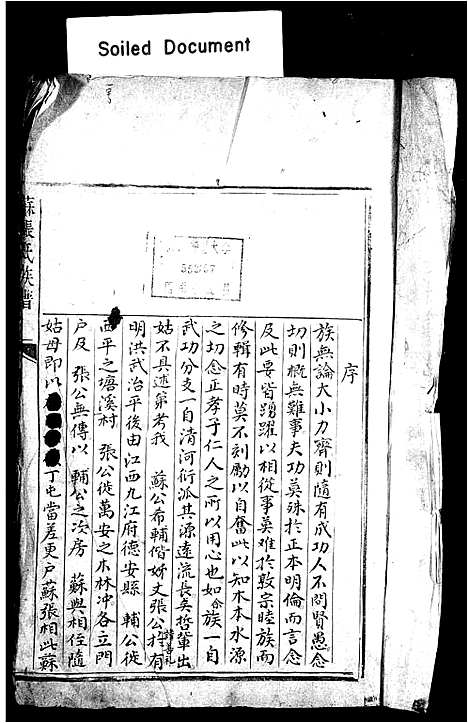 Soiled Document
序
族無論大小力齊則隨有成功人不問賢愚念
切則概無難事夫功莫殊於正本明倫而言念
及此要皆踴躍以相從事莫难於敦宗睦族而
修輯有時莫不刻勵以自奮此以知木本水源
之切念正孝子仁人之所以用心也如僉族一自
武功分支一自清河衍派其源遠流長矣哲輩出
姑不具述第考我 蘇公希輔偕妤丈張公 有
明洪武治平後由江西九江府德安縣 輔公徙
西平之塘溪村 張公徙萬安之木林冲各立門
戶及 張公無傳以 輔公之次房 蘇與相侄隨
姑母即以 丁屯當差更戶蘇張相此蘇
蘇張氏族譜